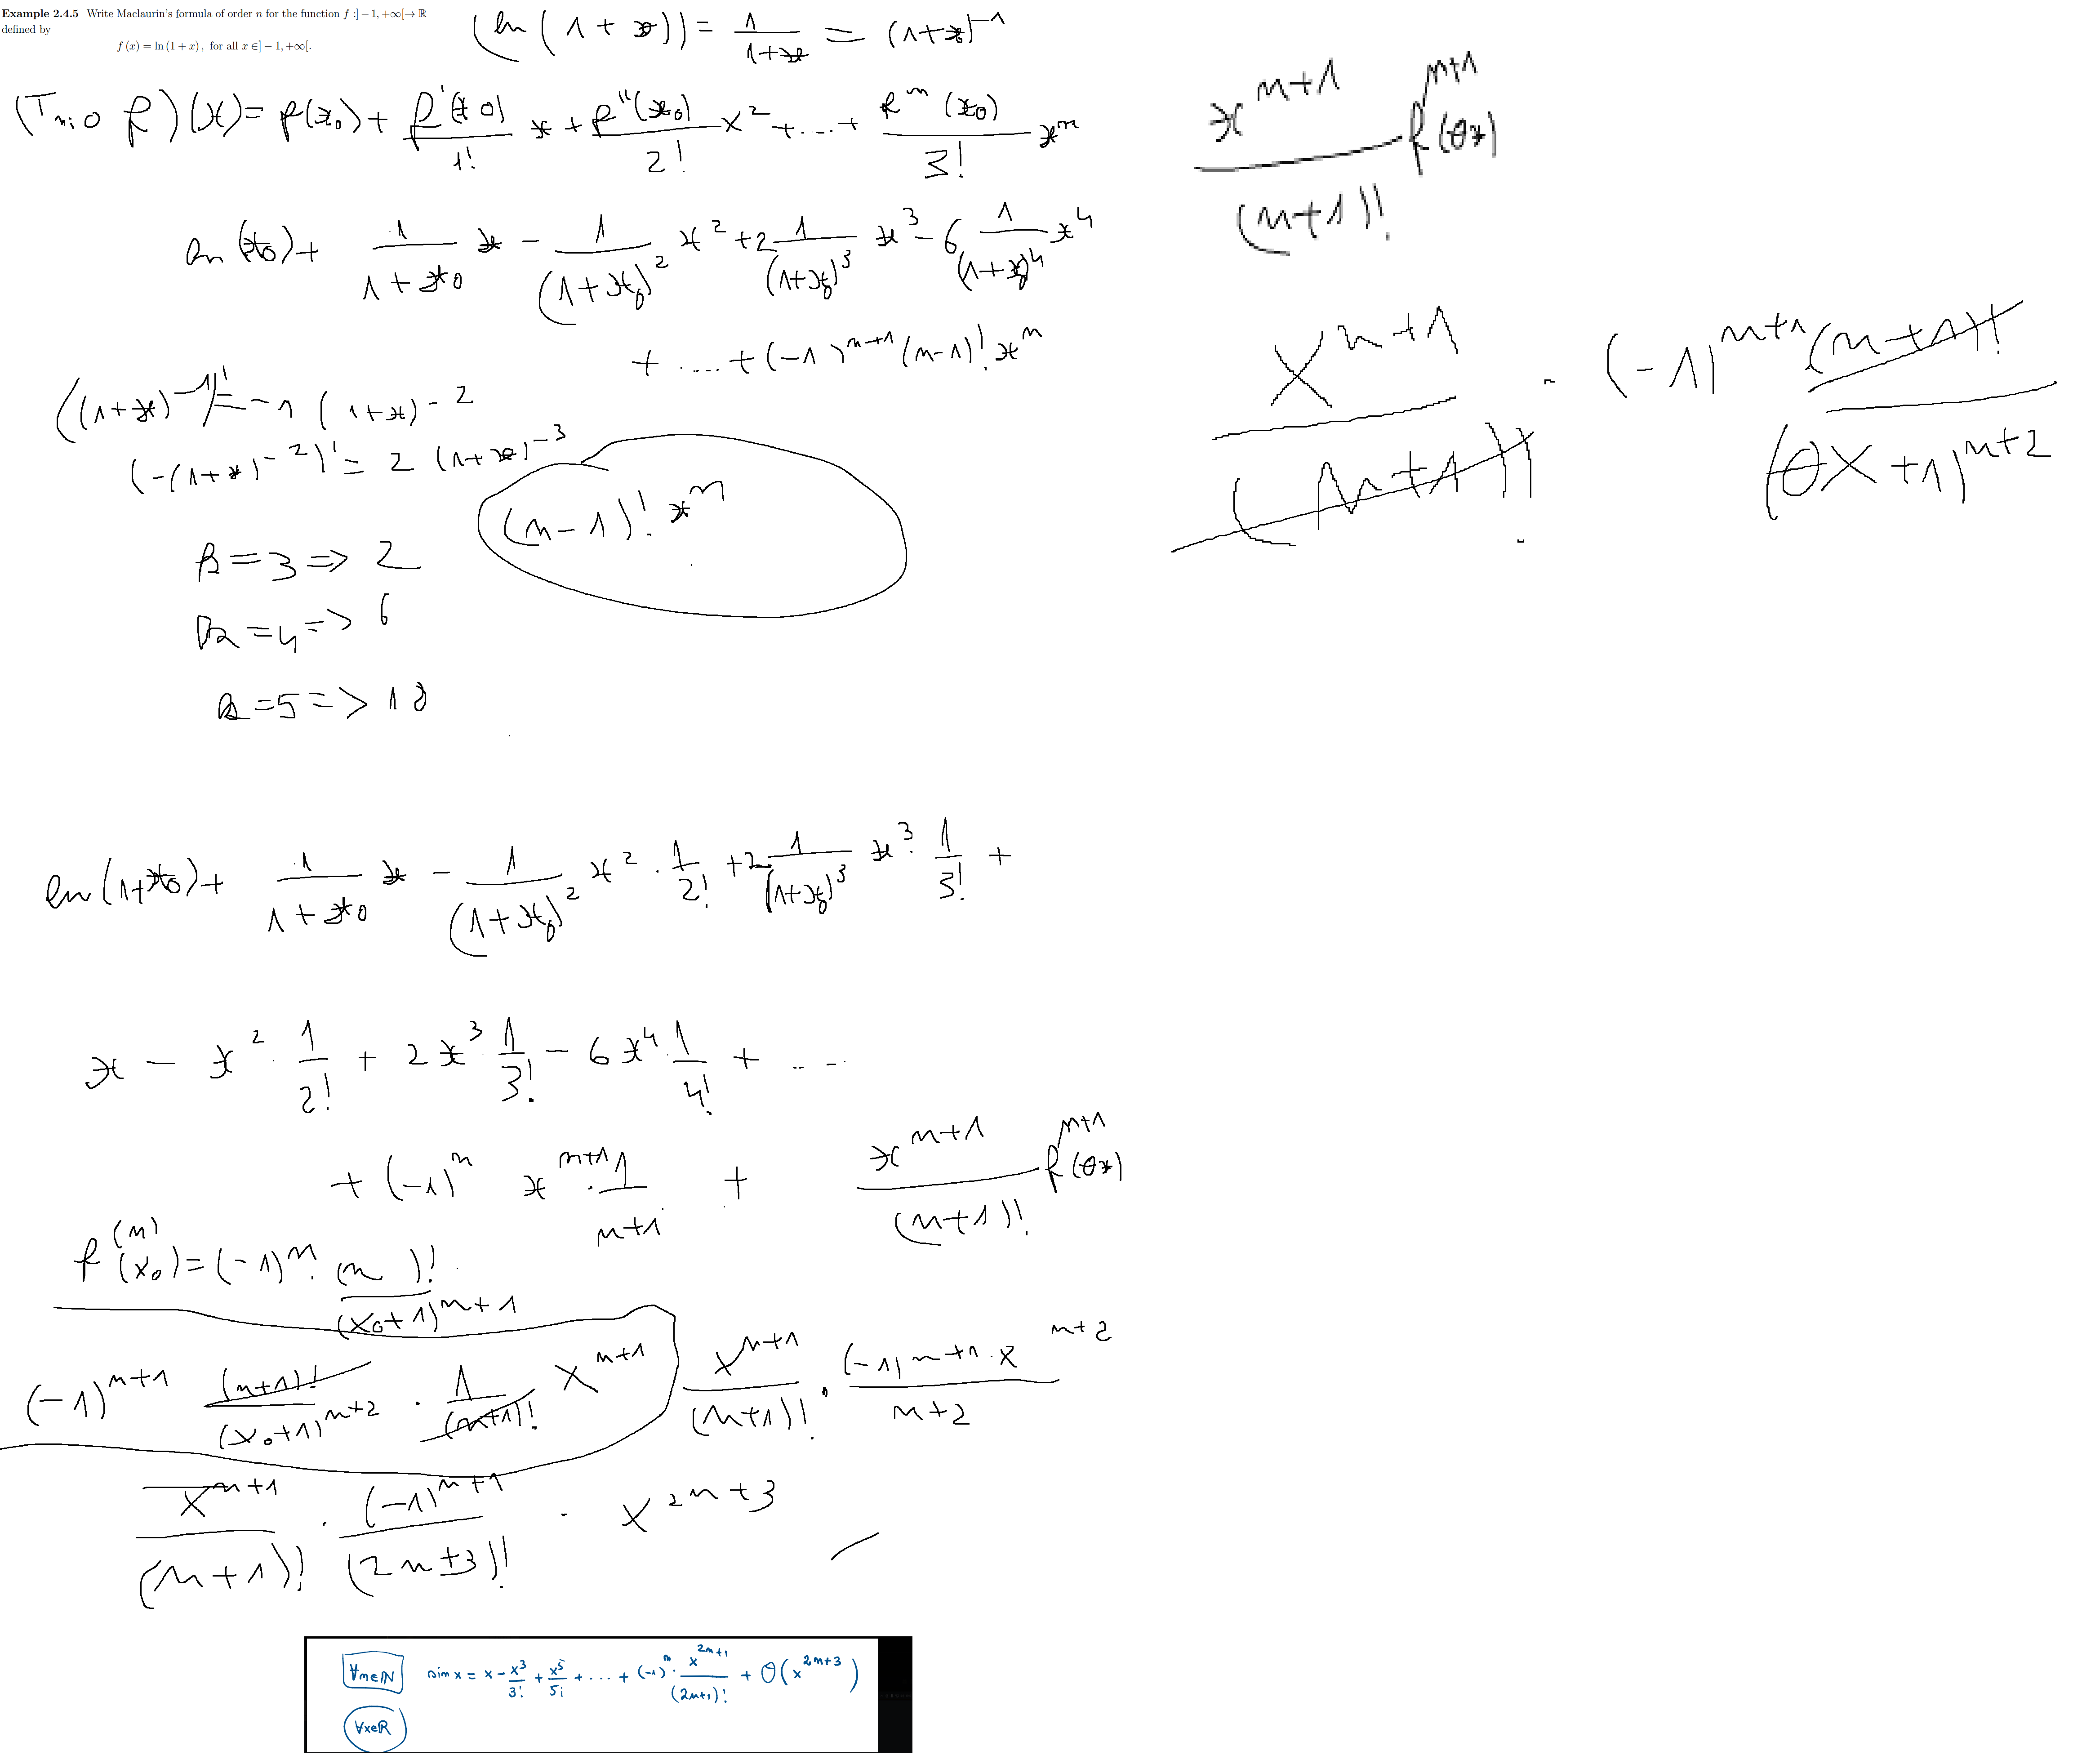 Example 2.4.5 Write Maclaurin's formula of order n for the function f :] − 1, +∞[→ ℝ
defined by
f (x) = ln (1 + x) , for all x ∈] − 1, +∞[.
(ln (1 + x)) = 1/(1+x) = (1+x)^-1
(T n; 0 f)(x) = f(x0) + f'(x0)/1! x + f''(x0)/2! x^2 + .... + f^n (x0)/3! x^n
x^(n+1)/(n+1)! f^(n+1)(θx)
ln (x0) + 1/(1+x0) x - 1/(1+x0)^2 x^2 + 2 1/(1+x0)^3 x^3 - 6 1/(1+x0)^4 x^4
+ .... + (-1)^(n+1) (n-1)! x^n
x^(n+1)/(n+1)! · (-1)^(n+1) (n+1)!/(θx+1)^(n+2)
((1+x)^-1)' = -1 (1+x)^-2
(-(1+x)^-2)' = 2 (1+x)^-3
(n-1)! x^n
k=3 => 2
k=4 => 6
k=5 => 10
ln (1+x0) + 1/(1+x0) x - 1/(1+x0)^2 x^2 · 1/2! + 2 1/(1+x0)^3 x^3 · 1/3! +
x - x^2 · 1/2! + 2x^3 · 1/3! - 6x^4 · 1/4! + ....
+ (-1)^n x^(n+1) · 1/(n+1) + x^(n+1)/(n+1)! f^(n+1)(θx)
f^(n)(x0) = (-1)^n · (n )!/(x0+1)^(n+1)
(-1)^(n+1) (n+1)!/(x0+1)^(n+2) · 1/(n+1)! x^(n+1)
x^(n+1)/(n+1)! · (-1)^(n+1) · x^(n+2)/(n+2)
x^(n+1)/(n+1)! · (-1)^(n+1)/(2n+3)! · x^(2n+3)
∀n∈ℕ sin x = x - x^3/3! + x^5/5! + ... + (-1)^n · x^(2n+1)/(2n+1)! + O(x^(2n+3))
∀x∈ℝ